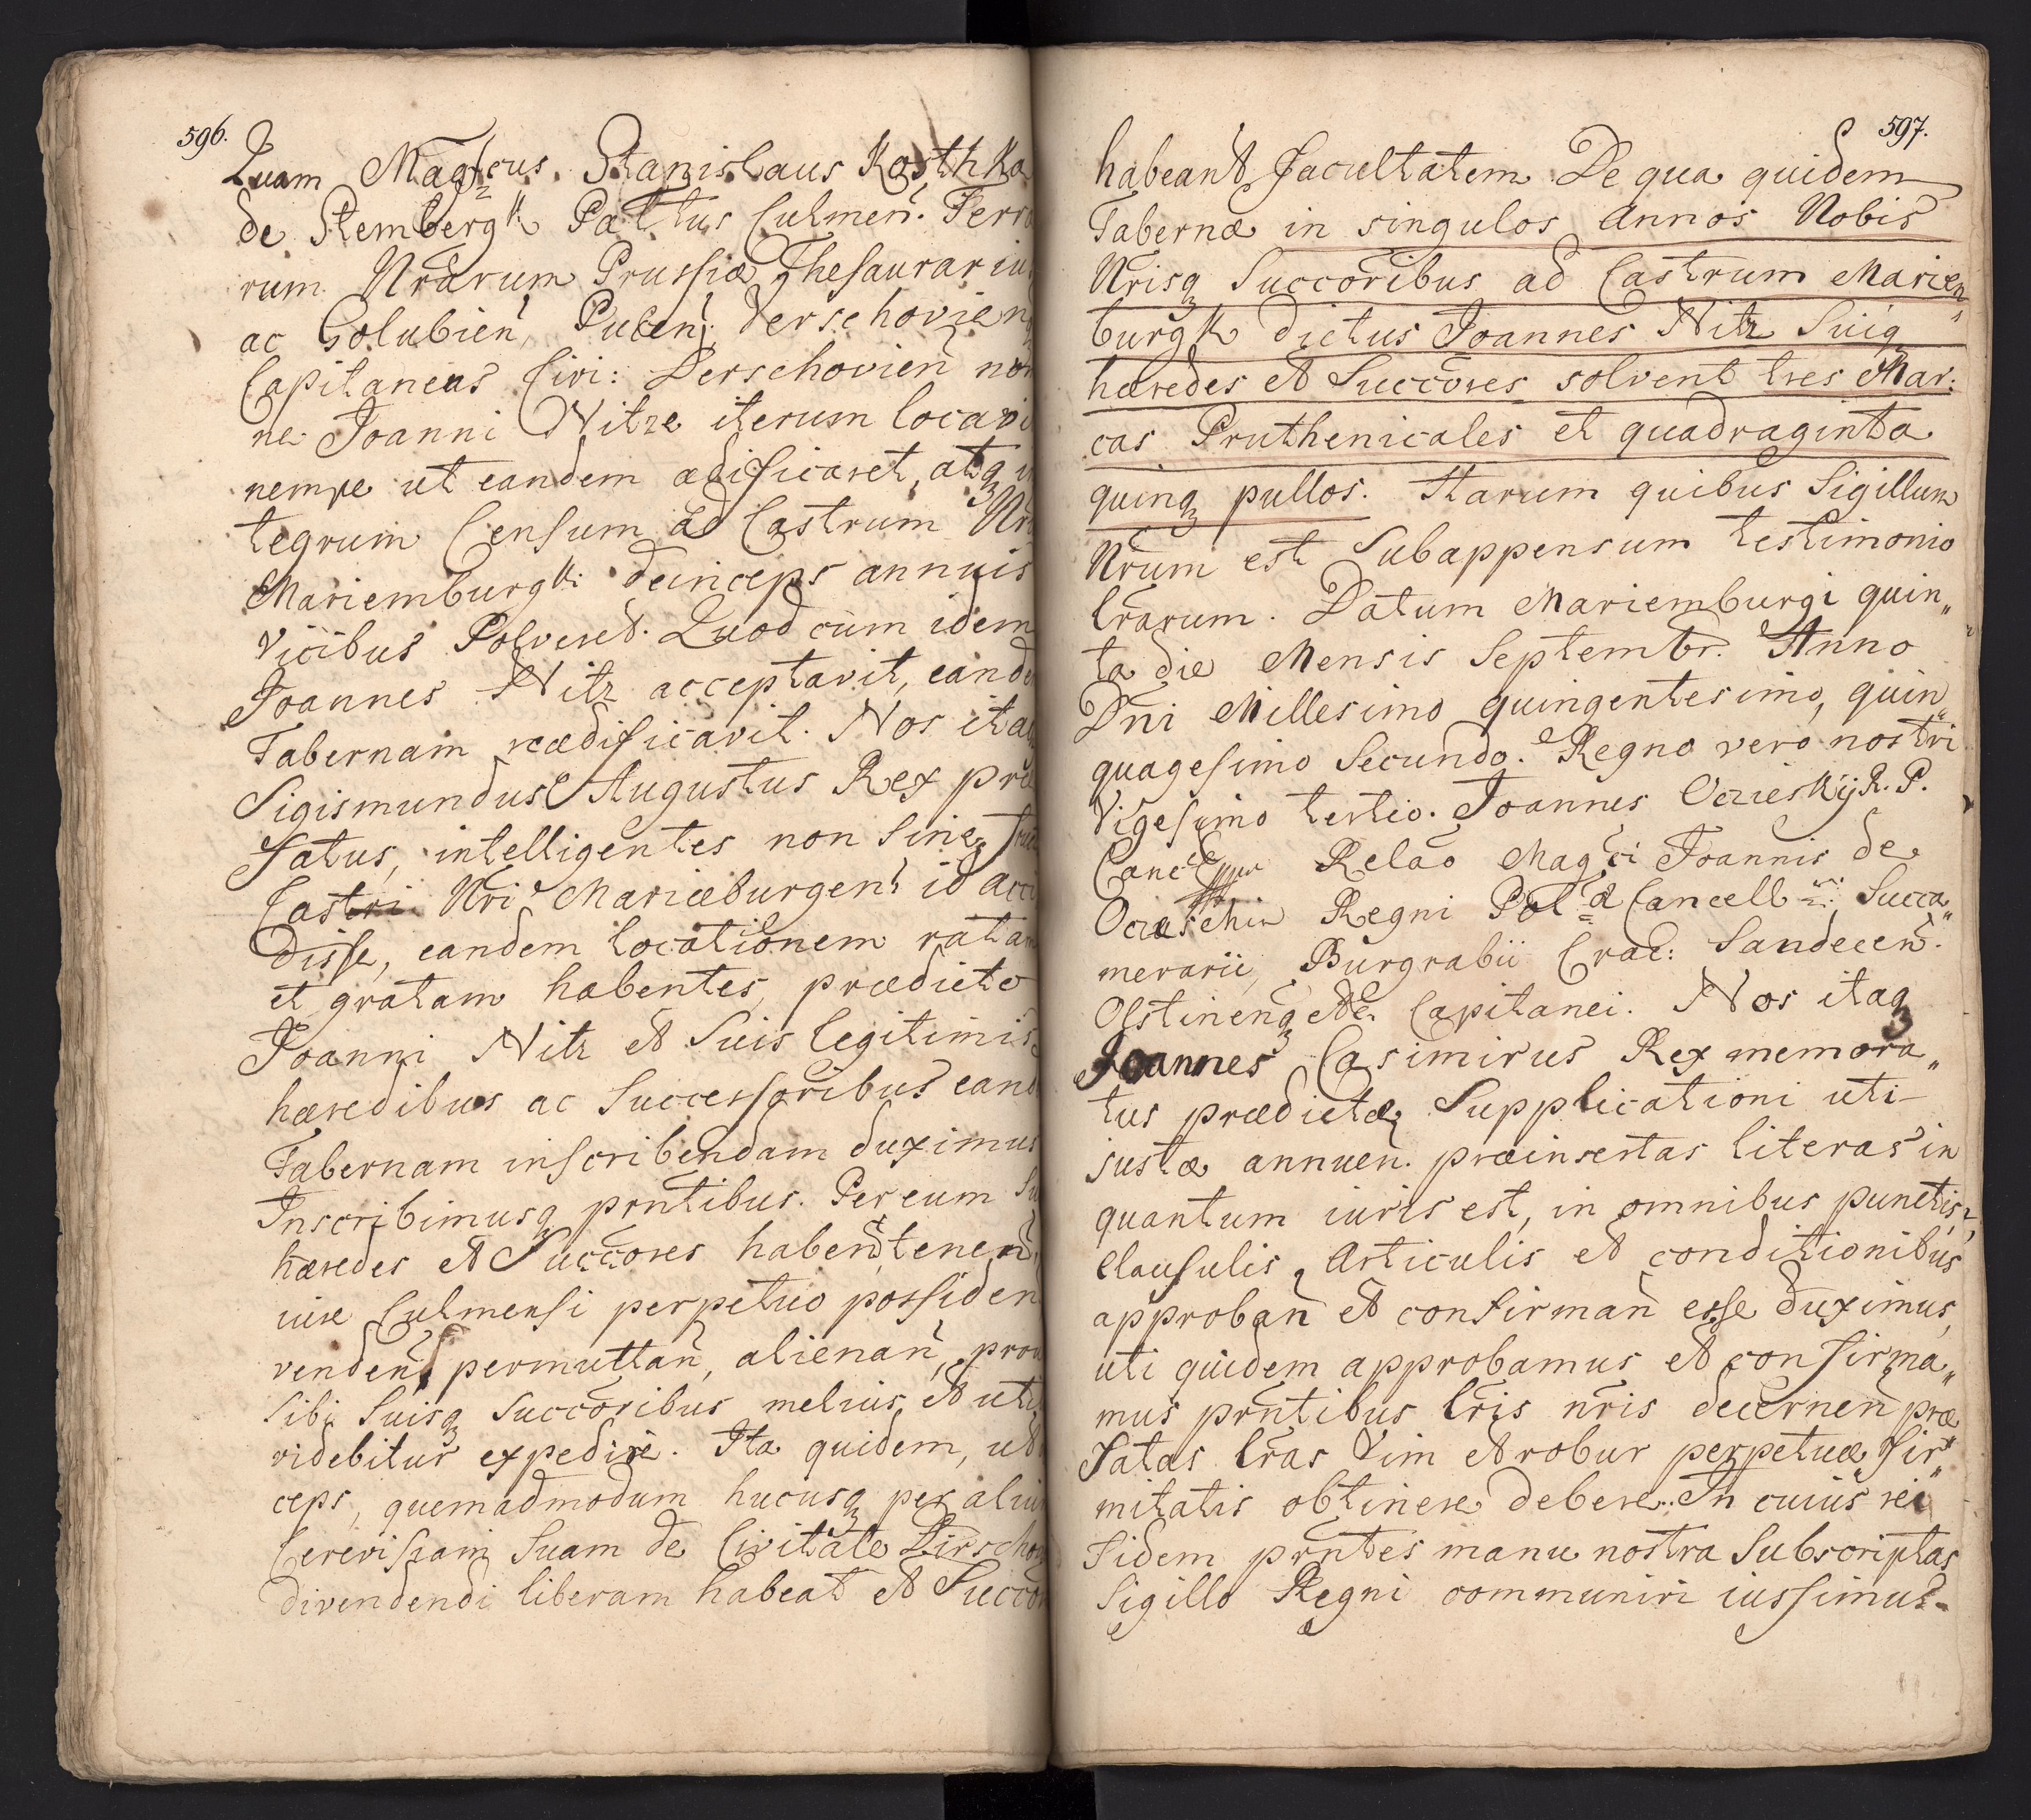 596.
Quam Mag̃cus Stanislaus Kosthka
de Stembergk Pal̃tus Culmeñ. Terra
rum Nr̃arum Prussiæ Thesaurariu
ac Golubieñ, Puceñ, derschovien
Capitaneus Civi: Derschovieñ nor
ne Joanni Nitze iterum locavi
nempe ut eandem ædificaret, atq in
tegrum Censum ad Castrum Nr̃
Mariemburgk: deinceps annuis
vicibus Solveret. Quod cum idem
Joannes Nitz acceptavit, eande
Tabernam reædificavit. Nos itaq
Sigismundus Augustus Rex præ
fatus, intelligentes non sine
Castri Nr̃i Mariæburgeñ id acci
disse, eandem locationem ratam
et gratam habentes, prædicto
Joanni Nitz et Suis legitimis
hæredibus ac Successoribus eand
Tabernam inscribendam duximus
Inscribimusq pr̃ntibus. Per eum Su
hæredes et Succ̃ores habend, teneñ
iure Culmensi perpetuo possiden
vendeñ, permuttañ, alienañ, prou
sibi Suisq Succ̃oribus melius et uti
videbitur expedire. Ita quidem, ut
ceps, quemadmodum hucusq per aliu
Cerevisiam Suam de Civitate Dirschov
divendendi liberam habeat et Succ̃or
597.
habeant facultatem. De qua quidem
Taberna in singulos Annos Nobis
Nr̃isq Succ̃oribus ad Castrum Marien„
burgk dictus Joannes Nitz Suiq
hæredes et Succ̃ores solvent tres Mar:
cas Pruthenicales et quadraginta
quinq pullos. Harum quibus Sigillum
Nr̃um est Subappensum testimonio
lr̃arum. Datum Mariemburgi quin„
ta die Mensis Septembr. Anno
Dñi Millesimo quingentesimo, quin„
quagesimo Secundo. Regno vero nostri
Vigesimo tertio. Joannes Oczieskij R. P.
Canc̃ Relaõ Mag̃ci Joannis de
Oczeschin Regni Pol: Cancell: Succa„
merarii, Burgrabii Crac: Sandeceñ.
Olstinenq etc. Capitanei. Nos itaq
Joannes Casimirus Rex memora„
tus prædictæ Supplicationi uti-
justæ annuen. præinsertas literas in
quantum iuris est, in omnibus punctis,
Clausulis, Articulis et conditionibus
approbañ et confirmañ esse duximus,
uti quidem approbamus et confirma„
mus pr̃ntibus lr̃is nr̃is decerneñ præ
fatas lr̃as Vim et robur perpetuæ fir„
mitatis obtinere debere. In cuius rei
fidem pr̃ntes manu nostra Subscriptas
Sigillo Regni communiri iussimus.